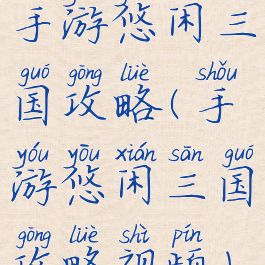 手游悠闲三
guó gōng lüè shǒu
国攻略(手
yóu yōu xián sān guó
游悠闲三国
gōng lüè shì pín
攻略视频)